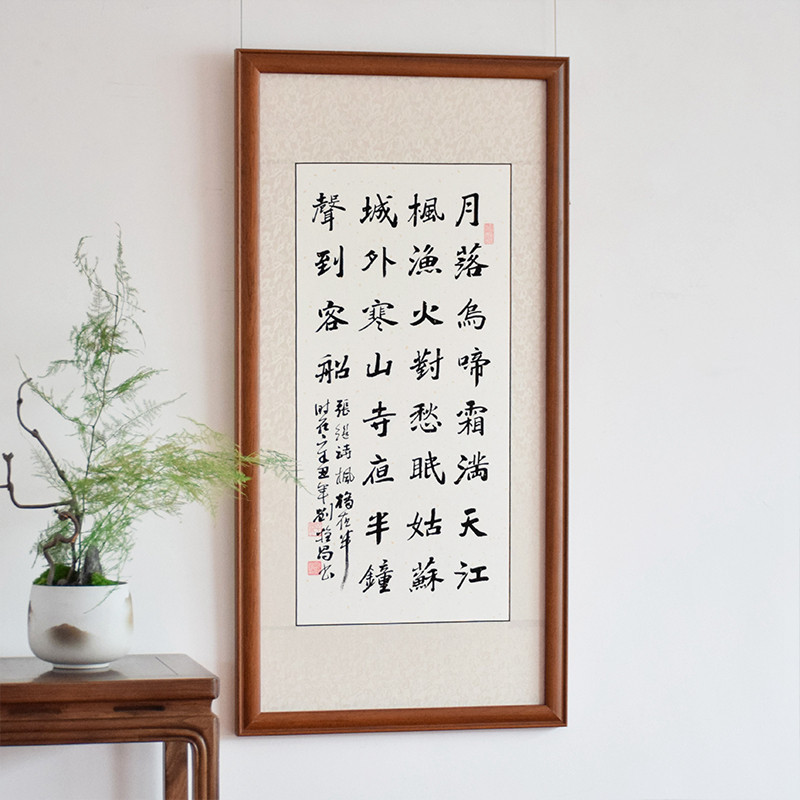 月落烏啼霜满天江
楓漁火對愁眠姑蘇
城外寒山寺夜半鐘
聲到客船
張继詩楓橋夜
时在丑年劉書